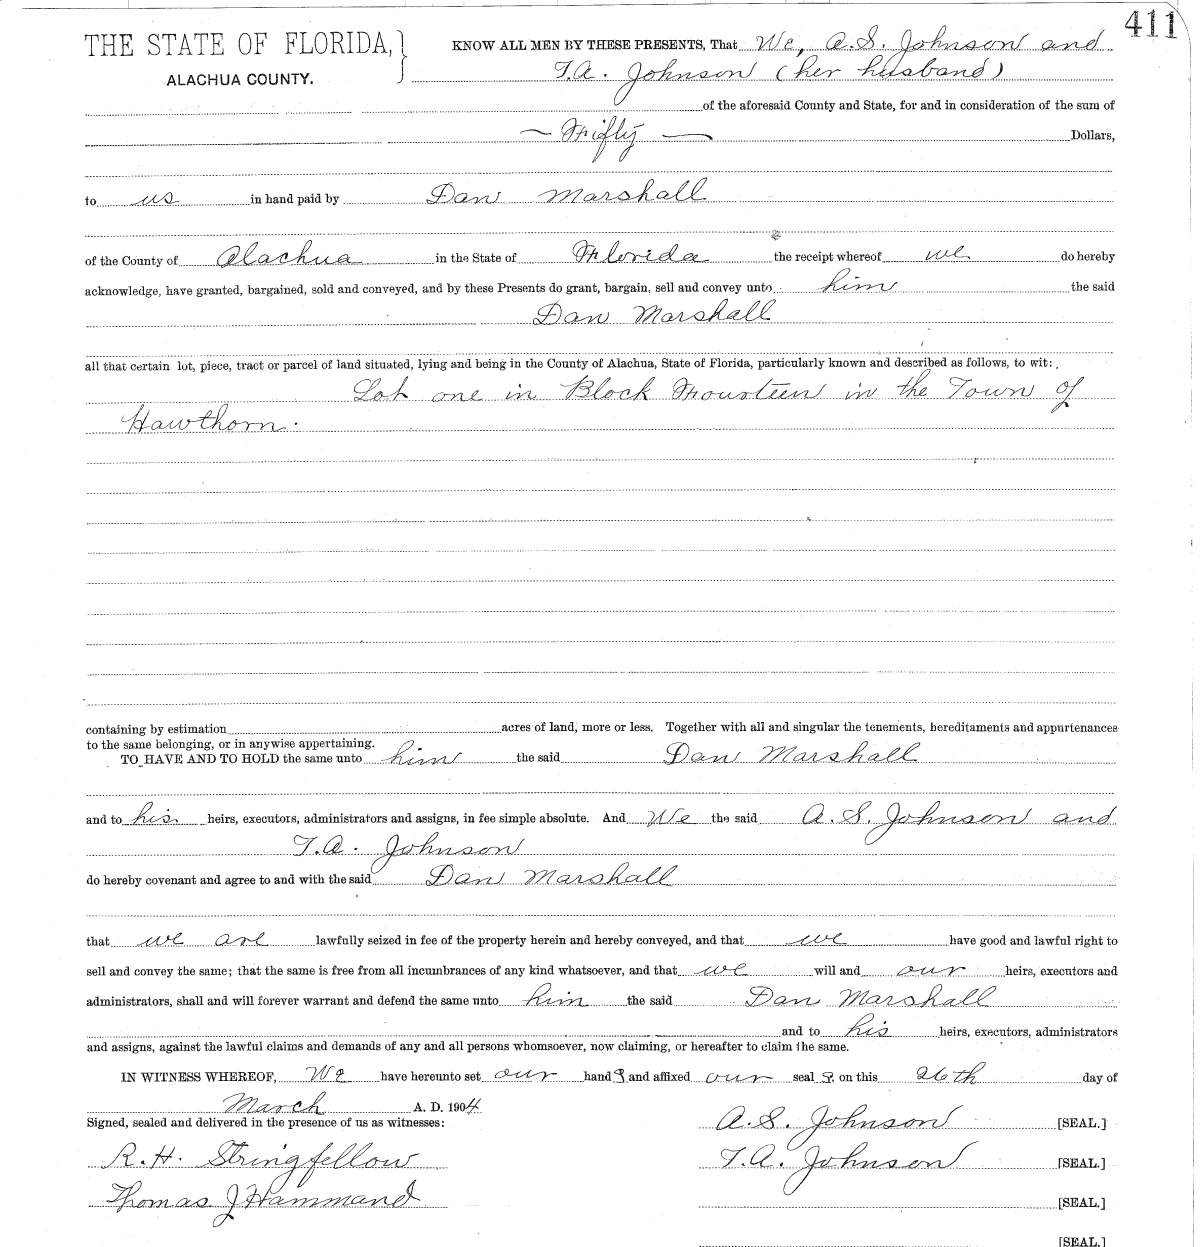 411
THE STATE OF FLORIDA,} KNOW ALL MEN BY THESE PRESENTS, That We, A.S. Johnson and
ALACHUA COUNTY. T.A. Johnson (her husband)
of the aforesaid County and State, for and in consideration of the sum of
— Fifty — Dollars,
to us in hand paid by Dan Marshall
of the County of Alachua in the State of Florida the receipt whereof we do hereby
acknowledge, have granted, bargained, sold and conveyed, and by these Presents do grant, bargain, sell and convey unto him the said
Dan Marshall
all that certain lot, piece, tract or parcel of land situated, lying and being in the County of Alachua, State of Florida, particularly known and described as follows, to wit:
Lot one in Block Fourteen in the Town of
Hawthorn.
containing by estimation acres of land, more or less. Together with all and singular the tenements, hereditaments and appurtenances
to the same belonging, or in anywise appertaining.
TO HAVE AND TO HOLD the same unto him the said Dan Marshall
and to his heirs, executors, administrators and assigns, in fee simple absolute. And We the said A.S. Johnson and
T.A. Johnson
do hereby covenant and agree to and with the said Dan Marshall
that we are lawfully seized in fee of the property herein and hereby conveyed, and that we have good and lawful right to
sell and convey the same; that the same is free from all incumbrances of any kind whatsoever, and that we will and our heirs, executors and
administrators, shall and will forever warrant and defend the same unto him the said Dan Marshall
and to his heirs, executors, administrators
and assigns, against the lawful claims and demands of any and all persons whomsoever, now claiming, or hereafter to claim the same.
IN WITNESS WHEREOF, We have hereunto set our hand s and affixed our seal s. on this 26th day of
March A. D. 1904
Signed, sealed and delivered in the presence of us as witnesses: A.S. Johnson [SEAL.]
R.H. Stringfellow T.A. Johnson [SEAL.]
Thomas J Hammand [SEAL.]
[SEAL.]